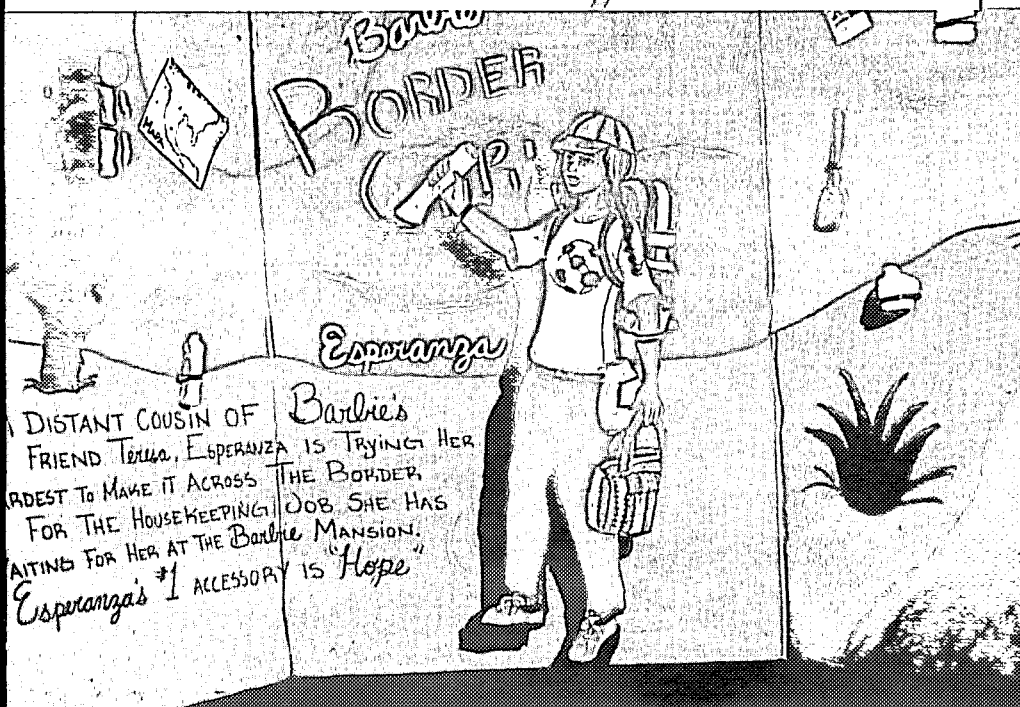 Barbie
BORDER
Esperanza
DISTANT COUSIN OF Barbie's
FRIEND Teresa, ESPERANZA IS TRYING HER
ARDEST TO MAKE IT ACROSS THE BORDER
FOR THE HOUSEKEEPING JOB SHE HAS
AITING FOR HER AT THE Barbie MANSION.
Esperanza's #1 ACCESSORY IS "Hope"